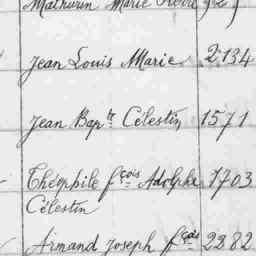 Mathurin Marie
Jean Louis Marie 2134
Jean Bapte Célestin 1571
Théophile fçois Adolphe 1703
Célestin
Armand Joseph fçois 2282